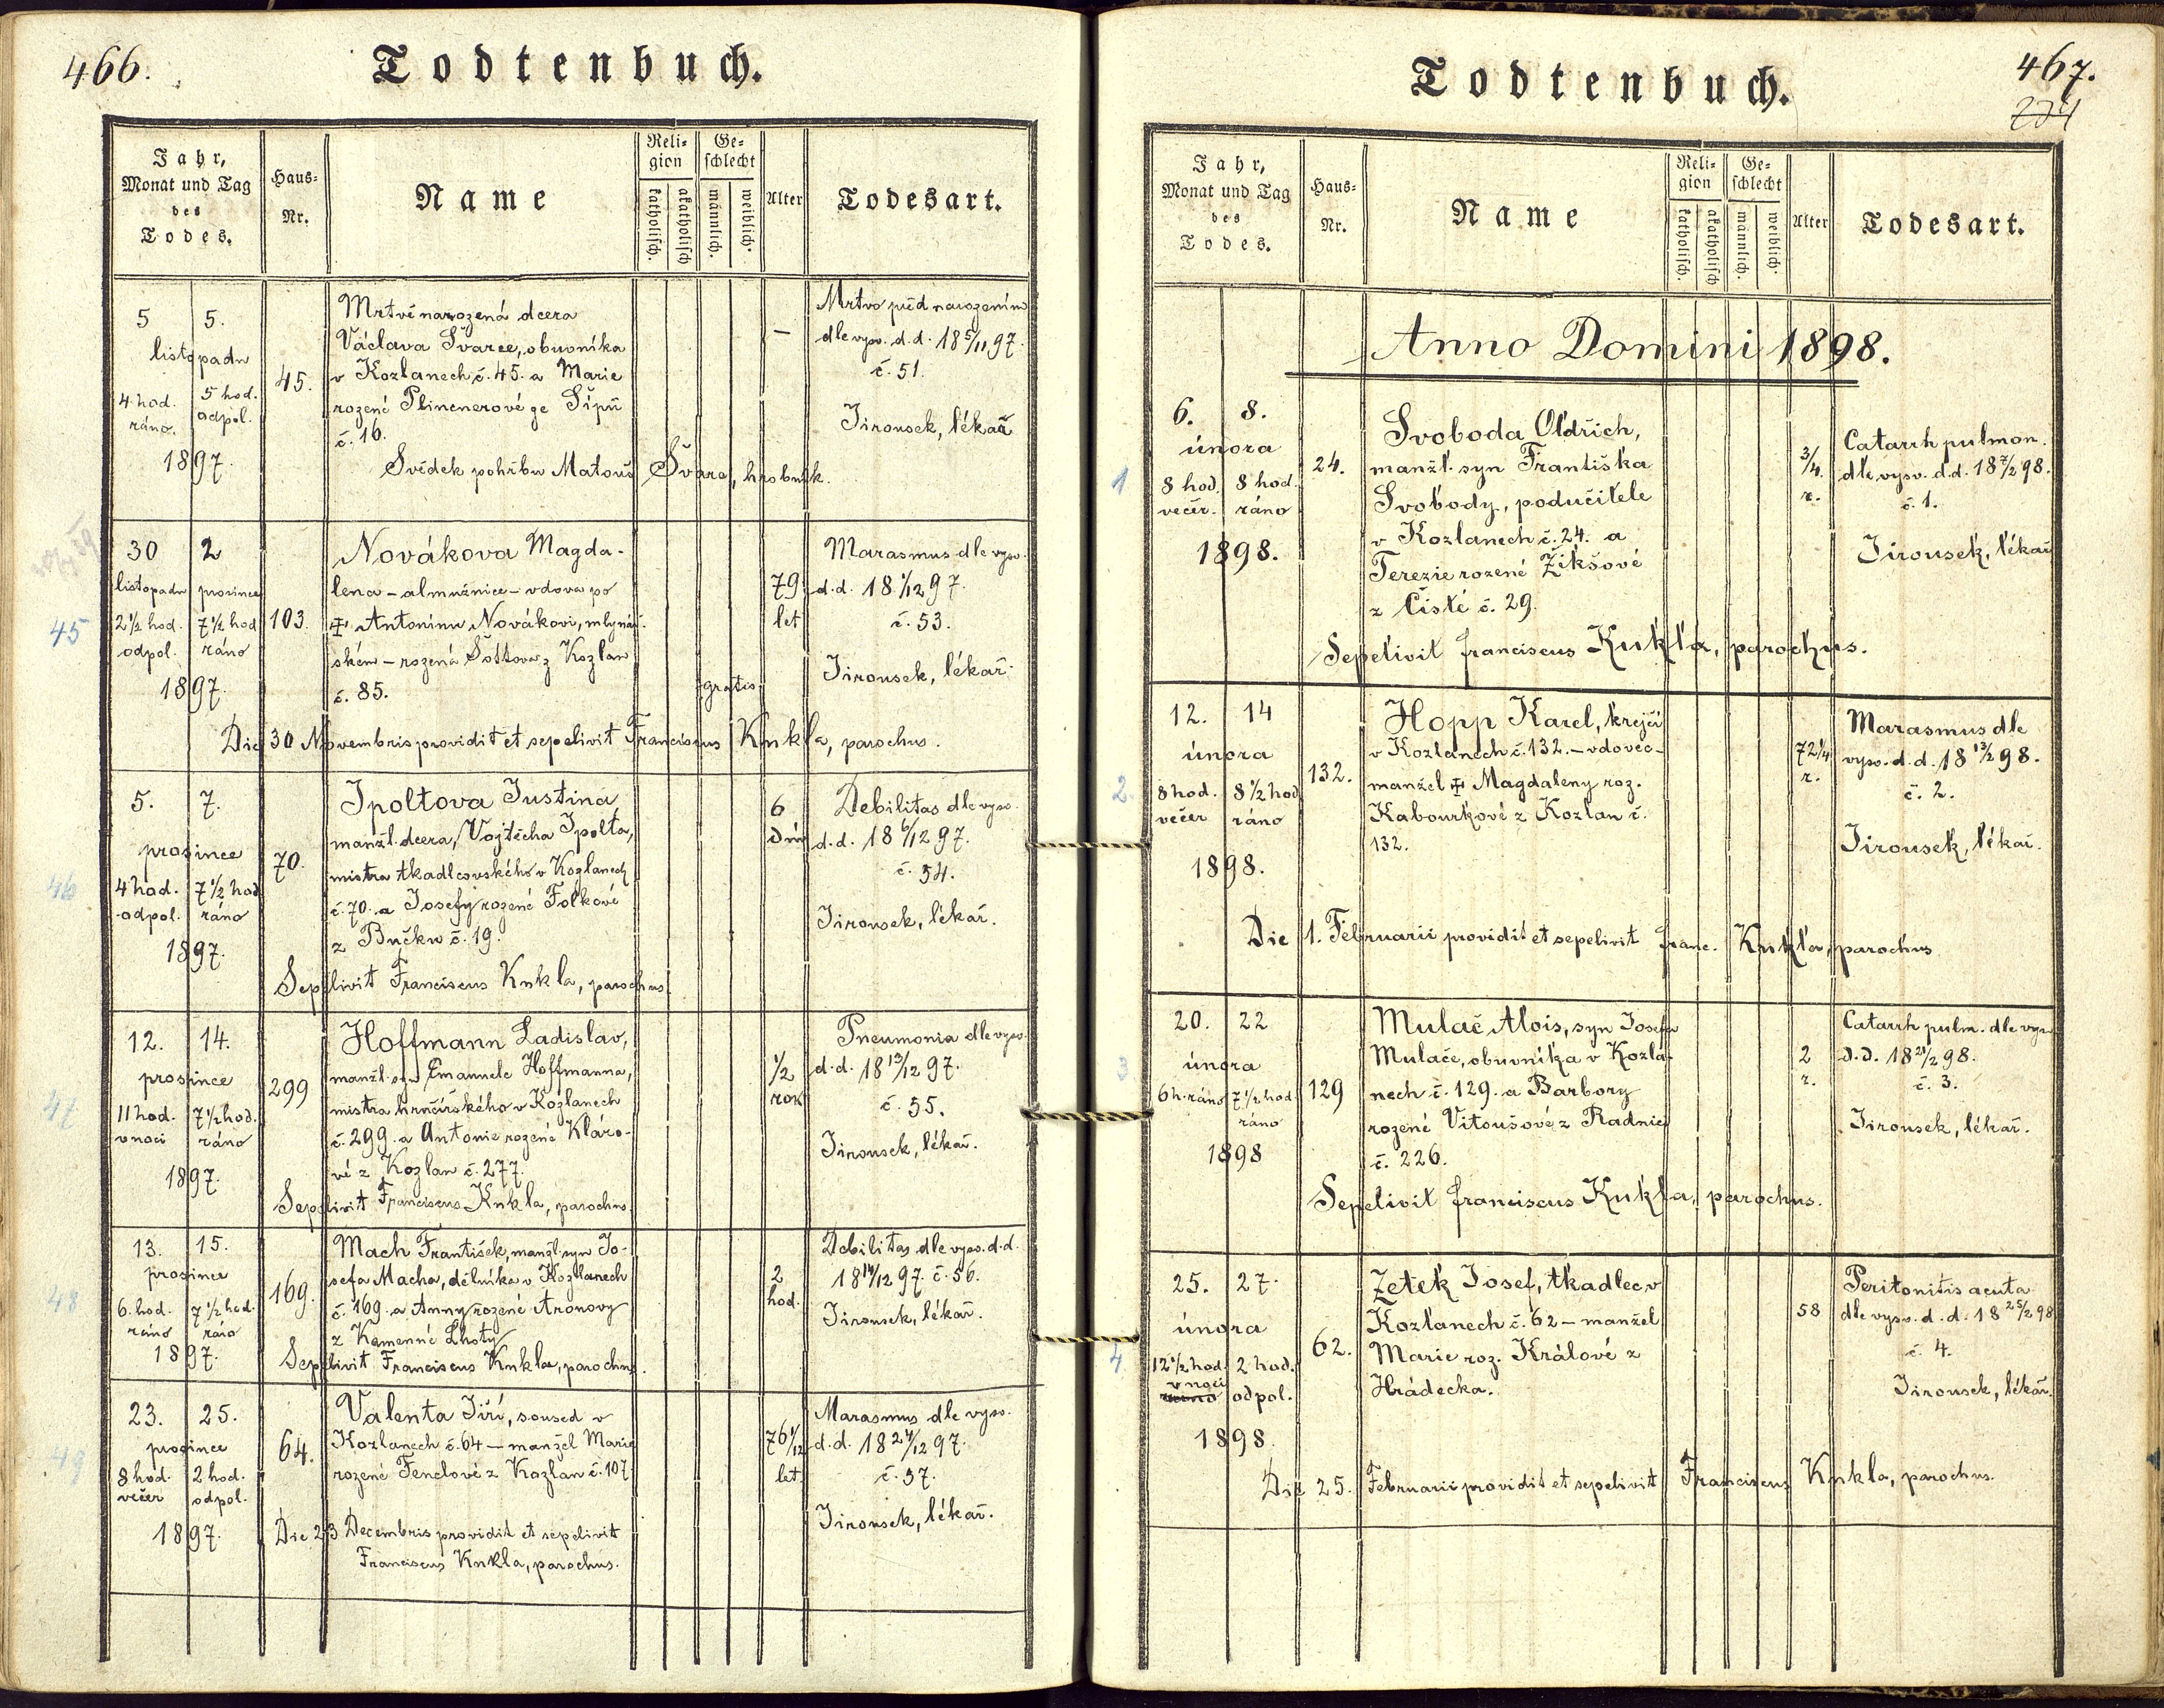 466.
Todtenbuch.
Jahr,
Monat und Tag
des
Todes.
Haus-
Nr.
Name
Reli-
gion
katholisch.
akatholisch
Ge-
schlecht
männlich.
weiblich.
Alter
Todesart.
5 5.
listopadu
4 hod. ráno. 5 hod. odpol.
1897.
45.
Mrtvě narozená dcera
Václava Švarce, obuvníka
v Kozlanech č. 45. a Marie
rozené Plincnerové ze Sípů
č. 16.
Svědek pohřbu Matouš Švarc, hrobník.
–
Mrtvo před narozením
dle vysv. d.d. 18 5/11 97.
č. 51.
Jirousek, lékař
45
30 2
listopadu prosince
2 1/2 hod. odpol. 7 1/2 hod ráno
1897.
103.
Novákova Magda-
lena – almužnice – vdova po
‡ Antonínu Novákovi, mlynář-
ském – rozená Šottova z Kozlan
č. 85.
gratis
Die 30 Novembris providit et sepelivit Franciscus Kukla, parochus.
79
let
Marasmus dle vysv.
d.d. 18 1/12 97.
č. 53.
Jirousek, lékař.
46
5. 7.
prosince
4 hod. odpol. 7 1/2 hod ráno
1897.
70.
Ipoltova Justina,
manžl. dcera, Vojtěcha Ipolta,
mistra tkadlcovského v Kozlanech
č. 70. a Josefy rozené Folkové
z Bučku č. 19.
Sepelivit Franciscus Kukla, parochus.
6
dnů
Debilitas dle vysv.
d.d. 18 6/12 97.
č. 54.
Jirousek, lékař.
47
12. 14.
prosince
11 hod. v noci 7 1/2 hod. ráno
1897.
299
Hoffmann Ladislav,
manžl. syn Emanuele Hoffmanna,
mistra hrnčířského v Kozlanech
č. 299. a Antonie rozené Kláro-
vé z Kozlan č. 277.
Sepelivit Franciscus Kukla, parochus.
1/2
rok
Pneumonia dle vysv.
d.d. 18 13/12 97.
č. 55.
Jirousek, lékař.
48
13. 15.
prosince
6. hod. ráno 7 1/2 hod. ráno
1897.
169.
Mach František, manžl. syn Jo-
sefa Macha, dělníka v Kozlanech
č. 169. a Anny rozené Aronovy
z Kamenné Lhoty
Sepelivit Franciscus Kukla, parochus.
2
hod.
Debilitas dle vysv. d.d.
18 14/12 97. č. 56.
Jirousek, lékař.
49
23. 25.
prosince
8 hod. večer 2 hod. odpol.
1897.
64.
Valenta Jiří, soused v
Kozlanech č. 64 – manžel Marie
rozené Fenclové z Kozlan č. 107.
Die 23 Decembris providit et sepelivit
Franciscus Kukla, parochus.
76 1/12
let
Marasmus dle vysv.
d.d. 18 24/12 97.
č. 57.
Jirousek, lékař.
467.
Todtenbuch.
Jahr,
Monat und Tag
des
Todes.
Haus-
Nr.
Name
Reli-
gion
katholisch.
akatholisch
Ge-
schlecht
männlich.
weiblich.
Alter
Todesart.
Anno Domini 1898.
1
6. 8.
února
8 hod. večer. 8 hod. ráno
1898.
24.
Svoboda Oldřich,
manžl. syn Františka
Svobody, podučitele
v Kozlanech č. 24. a
Terezie rozené Žikšové
z Čisté č. 29.
Sepelivit Franciscus Kukla, parochus.
3/4.
r.
Catarrh pulmon.
dle vysv. d.d. 18 7/2 98.
č. 1.
Jirousek, lékař
2.
12. 14
února
8 hod. večer 8 1/2 hod ráno
1898.
132.
Hopp Karel, krejčí
v Kozlanech č. 132. – vdovec –
manžel ‡ Magdaleny roz.
Kabourkové z Kozlan č.
132.
Die 1. Februarii providit et sepelivit Franc. Kukla, parochus
72 1/4
r.
Marasmus dle
vysv. d.d. 18 13/2 98.
č. 2.
Jirousek, lékař.
3
20. 22
února
6 h. ráno 7 1/2 hod. ráno
1898
129
Mulač Alois, syn Josefa
Mulače, obuvníka v Kozla-
nech č. 129. a Barbory
rozené Vitoušové z Radnic
č. 226.
Sepelivit Franciscus Kukla, parochus.
2
r.
Catarrh pulm. dle vysv.
d.d. 18 21/2 98.
č. 3.
Jirousek, lékař.
4.
25. 27.
února
12 1/2 hod. v noci 2 hod. odpol.
1898.
62.
Zetek Josef, tkadlec v
Kozlanech č. 62 – manžel
Marie roz. Králové z
Hrádecka.
Die 25. Februarii providit et sepelivit Franciscus Kukla, parochus.
58
Peritonitis acuta
dle vysv. d.d. 18 25/2 98
č. 4.
Jirousek, lékař.